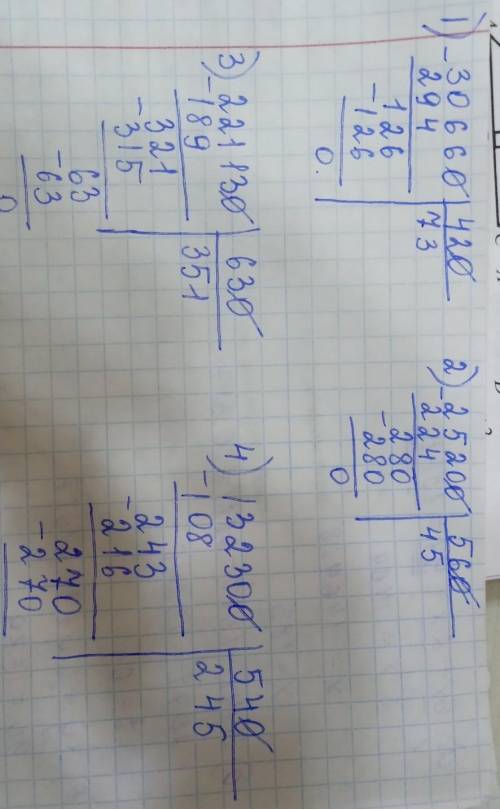 1) -30660 | 420
294 | 73
126
-126
0.
2) -25200 | 560
224 | 45
-280
280
0
3) -221130 | 630
189 | 351
-321
315
-63
63
0
4) -132300 | 540
108 | 245
-243
216
-270
270